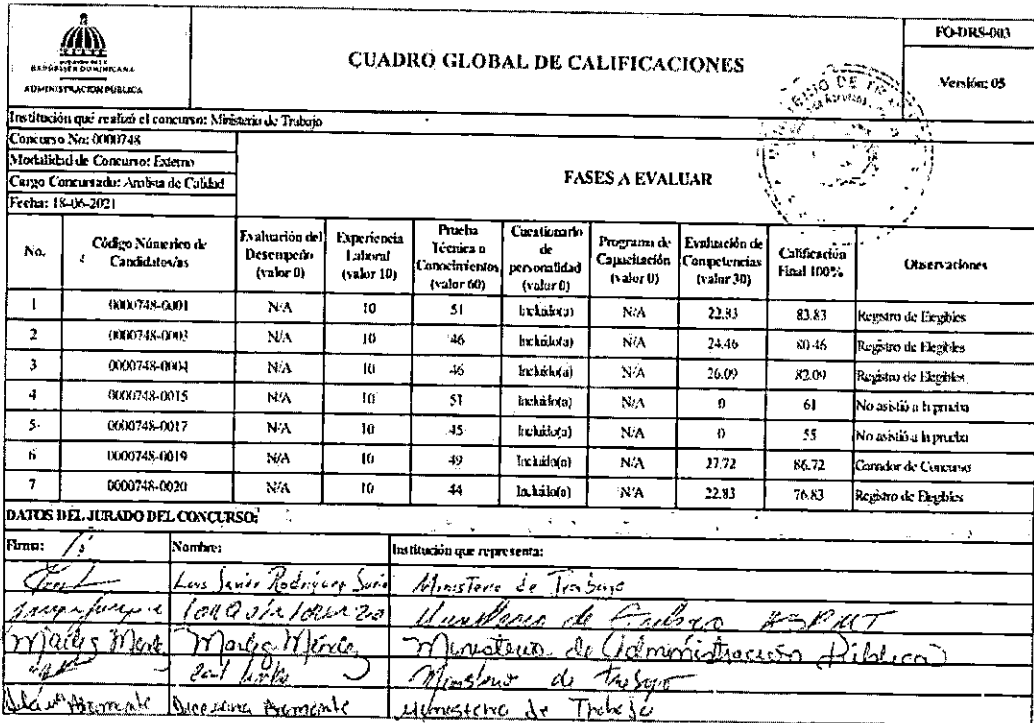 FO-DRS-003
REPÚBLICA DOMINICANA
ADMINISTRACIÓN PÚBLICA
CUADRO GLOBAL DE CALIFICACIONES
Versión: 05
Institución que realizó el concurso: Ministerio de Trabajo
Concurso No: 0000748
Modalidad de Concurso: Externo
Cargo Concursado: Analista de Calidad
Fecha: 18-06-2021
FASES A EVALUAR
No. Código Númerico de Candidatos/as Evaluación del Desempeño (valor 0) Experiencia Laboral (valor 10) Prueba Técnica o Conocimientos (valor 60) Cuestionario de personalidad (valor 0) Programa de Capacitación (valor 0) Evaluación de Competencias (valor 30) Calificación Final 100% Observaciones
1 0000748-0001 N/A 10 51 Incluido(a) N/A 22.83 83.83 Registro de Elegibles
2 0000748-0003 N/A 10 46 Incluido(a) N/A 24.46 80.46 Registro de Elegibles
3 0000748-0004 N/A 10 46 Incluido(a) N/A 26.09 82.09 Registro de Elegibles
4 0000748-0015 N/A 10 51 Incluido(a) N/A 0 61 No asistió a la prueba
5 0000748-0017 N/A 10 45 Incluido(a) N/A 0 55 No asistió a la prueba
6 0000748-0019 N/A 10 49 Incluido(a) N/A 27.72 86.72 Ganador de Concurso
7 0000748-0020 N/A 10 44 Incluido(a) N/A 22.83 76.83 Registro de Elegibles
DATOS DEL JURADO DEL CONCURSO:
Firma: Nombre: Institución que representa:
Luis Javier Rodriguez Ministerio de Trabajo
Ministerio de
Ministerio de Administración Pública
Ministerio de Trabajo
Ministerio de Trabajo